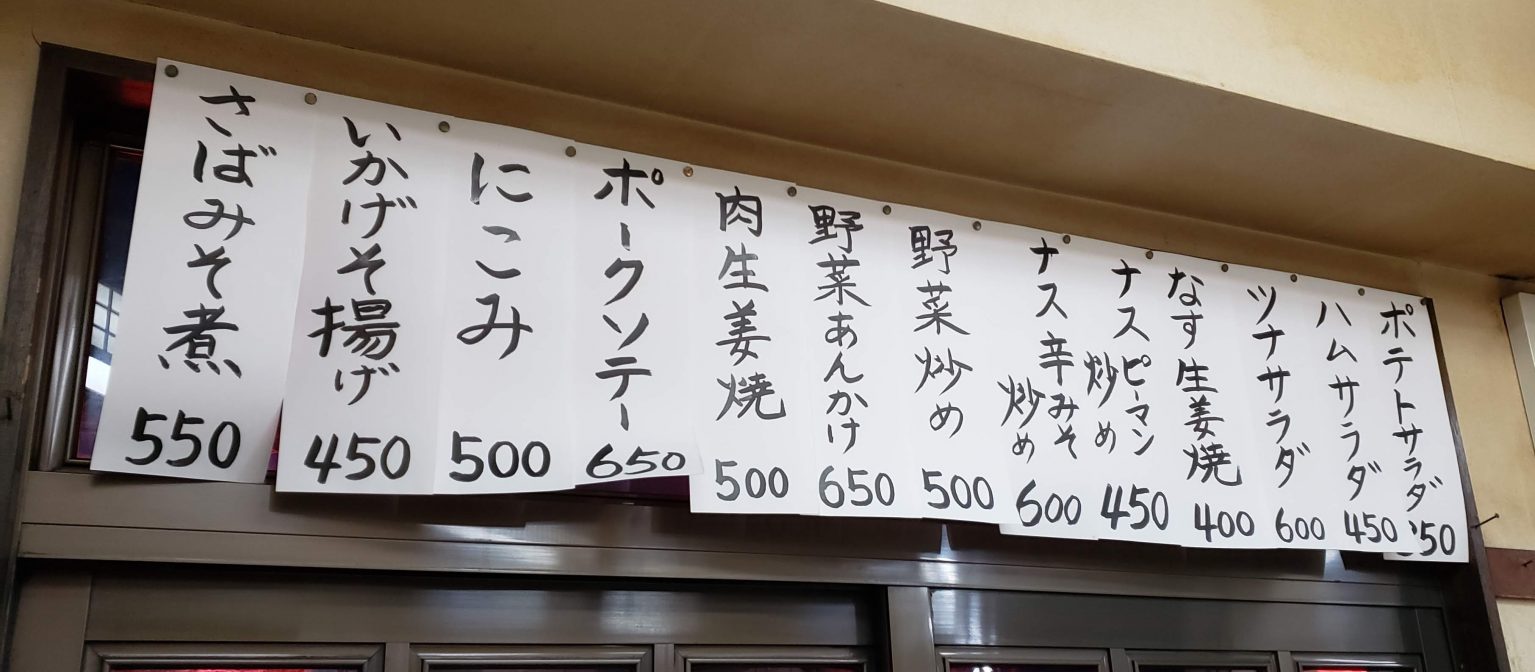 ポテトサラダ
ハムサラダ
450
ツナサラダ
600
なす生姜焼
400
ナスピーマン
炒め
450
ナス辛みそ
炒め
600
野菜炒め
500
野菜あんかけ
650
肉生姜焼
500
ポークソテー
650
にこみ
500
いかげそ揚げ
450
さばみそ煮
550